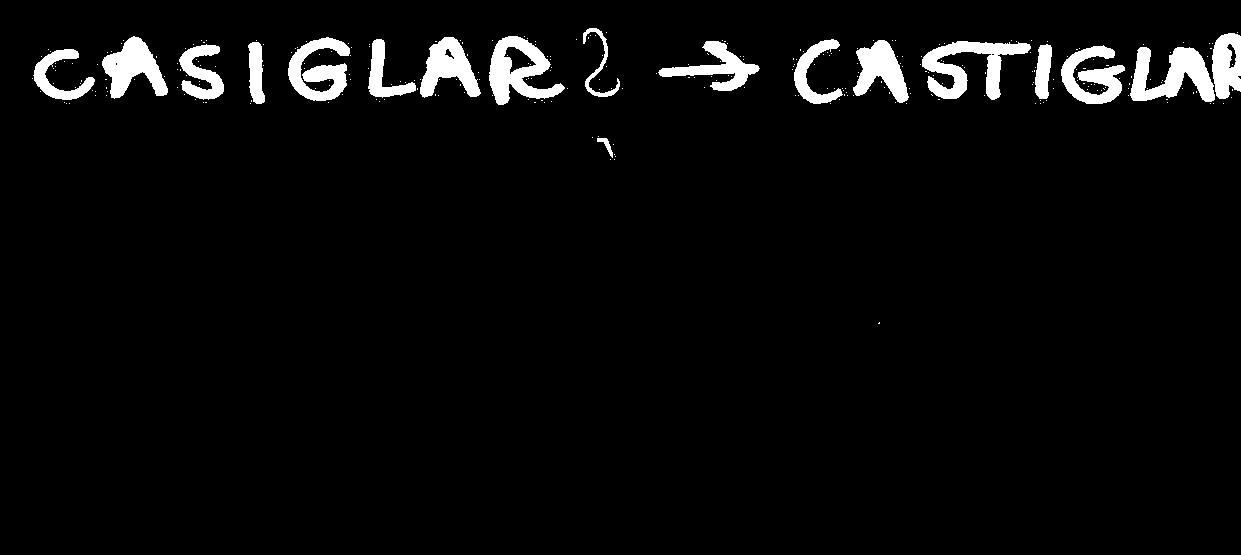 CASIGLAR? → CASTIGLAR